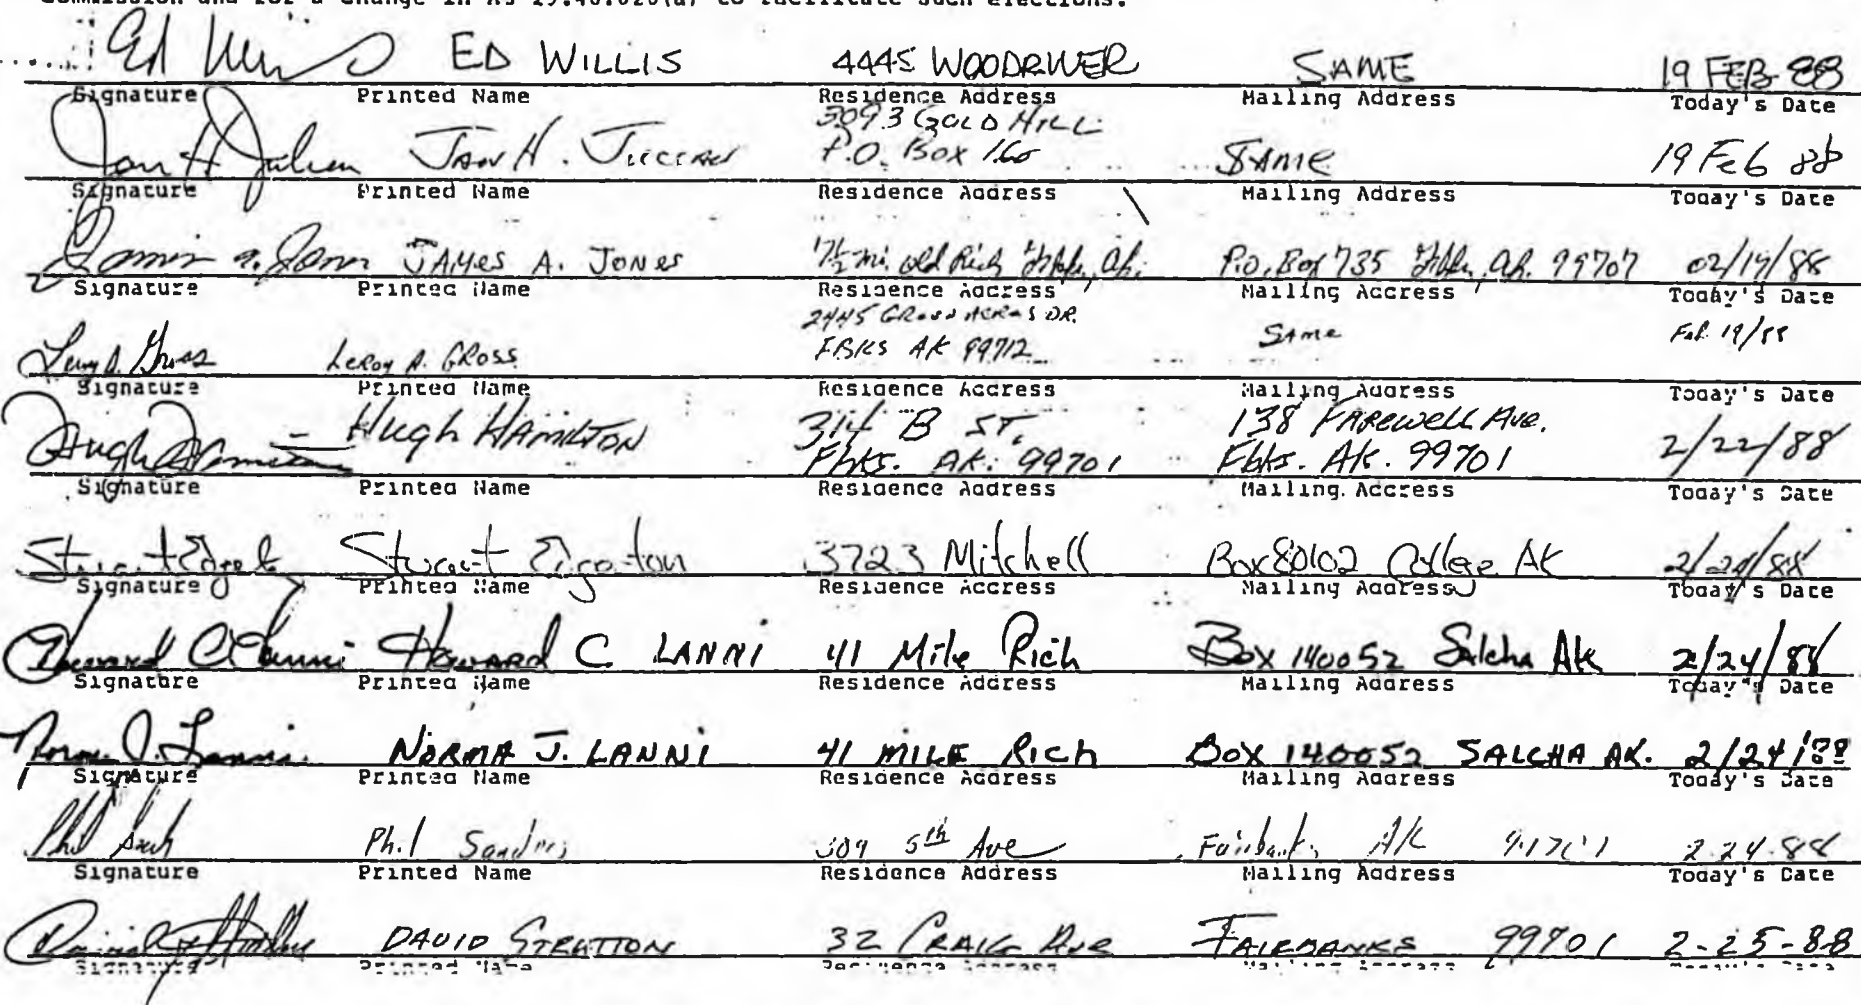 Commission and for a change in AS 29.40.020(a) to facilitate such elections.
Ed Willis ED WILLIS 4445 WOODRIVER SAME 19 FEB 88
Signature Printed Name Residence Address Mailing Address Today's Date
3093 GOLD HILL
Jan H. P.O. Box 160 SAME 19 Feb 88
Signature Printed Name Residence Address Mailing Address Today's Date
James A. Jones JAMES A. JONES 17½ mi. old Rich P.O. Box 735 99707 02/19/88
Signature Printed Name Residence Address Mailing Address Today's Date
2445 DR.
Leroy A. Gross LeRoy A. GROSS FBKS AK 99712 Same Feb 19/88
Signature Printed Name Residence Address Mailing Address Today's Date
Hugh Hamilton Hugh HAMILTON 314 B ST. 138 FAREWELL Ave.
Fbks. AK. 99701 Fbks. AK. 99701 2/22/88
Signature Printed Name Residence Address Mailing Address Today's Date
Stuart Stuart 3723 Mitchell Box 80102 College AK 2/24/88
Signature Printed Name Residence Address Mailing Address Today's Date
Howard C Lanni Howard C. LANNI 41 Mile Rich Box 140052 Salcha AK 2/24/88
Signature Printed Name Residence Address Mailing Address Today's Date
Norma J. Lanni NORMA J. LANNI 41 MILE Rich BOX 140052 SALCHA AK. 2/24/88
Signature Printed Name Residence Address Mailing Address Today's Date
Phil Phil Sanders 5th Ave Fairbanks AK 2-24-88
Signature Printed Name Residence Address Mailing Address Today's Date
David DAVID STRATTON 32 CRAIG AVE FAIRBANKS 99701 2-25-88
Signature Printed Name Residence Address Mailing Address Today's Date